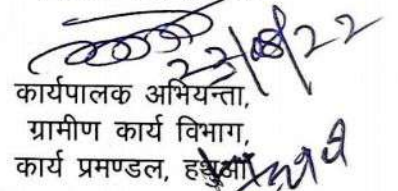 22/08/22
कार्यपालक अभियन्ता,
ग्रामीण कार्य विभाग,
कार्य प्रमण्डल, हथुआ